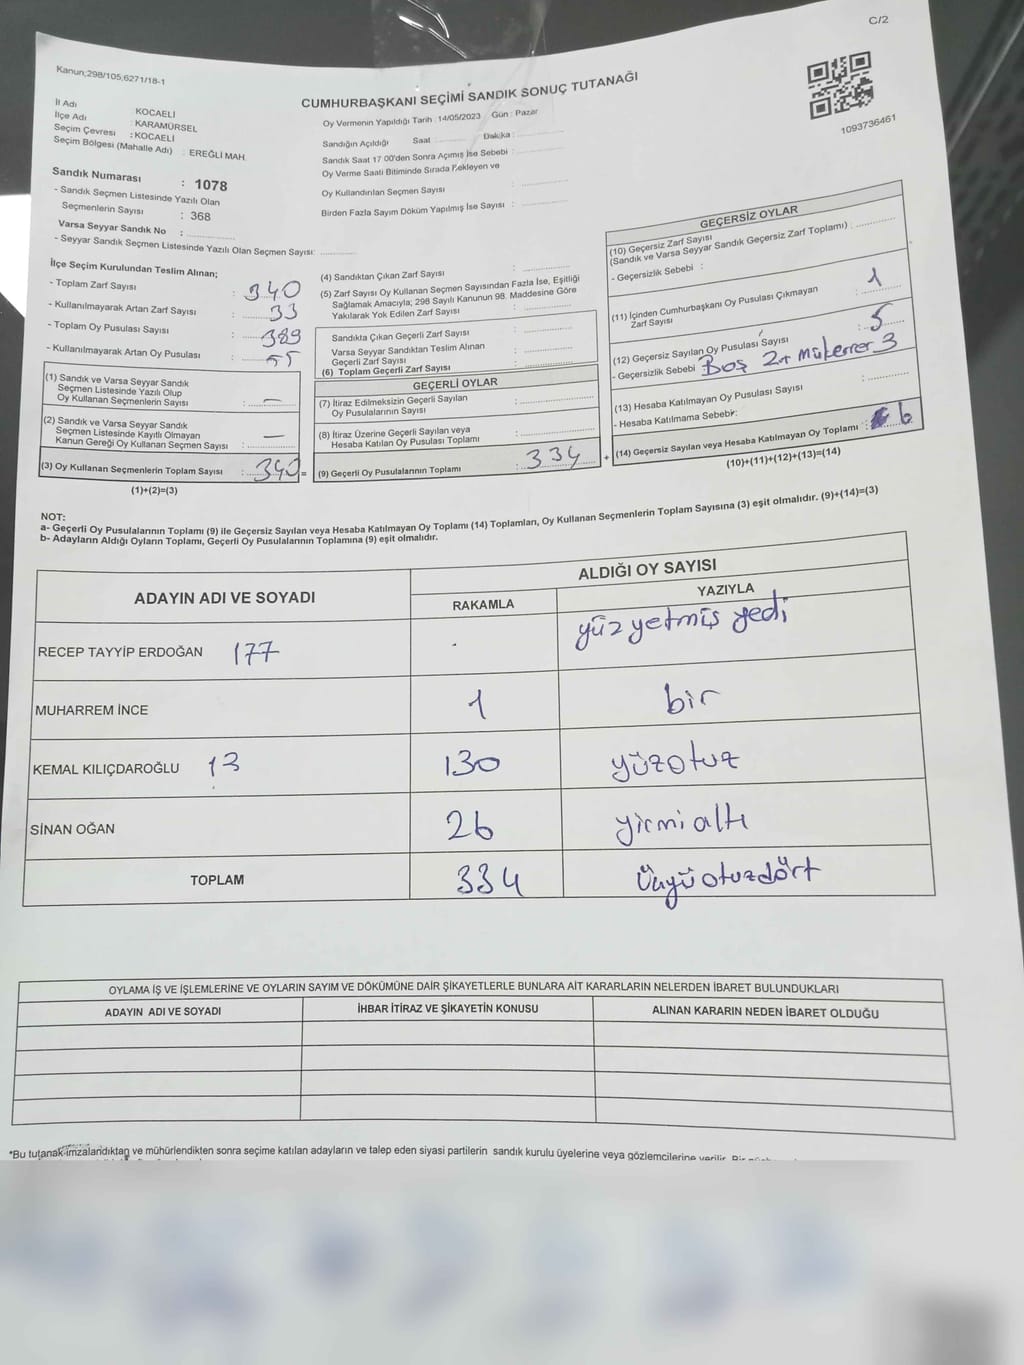 C/2
Kanun;298/105;6271/18-1
CUMHURBAŞKANI SEÇİMİ SANDIK SONUÇ TUTANAĞI
1093736461
İl Adı KOCAELİ
İlçe Adı : KARAMÜRSEL
Seçim Çevresi : KOCAELİ
Seçim Bölgesi (Mahalle Adı) : EREĞLİ MAH.
Oy Vermenin Yapıldığı Tarih : 14/05/2023 Gün : Pazar
Sandığın Açıldığı Saat : Dakika :
Sandık Saat 17 00'den Sonra Açımış İse Sebebi :
Oy Verme Saati Bitiminde Sırada Bekleyen ve
Oy Kullandırılan Seçmen Sayısı :
Birden Fazla Sayım Döküm Yapılmış İse Sayısı :
Sandık Numarası : 1078
- Sandık Seçmen Listesinde Yazılı Olan
Seçmenlerin Sayısı : 368
Varsa Seyyar Sandık No :
- Seyyar Sandık Seçmen Listesinde Yazılı Olan Seçmen Sayısı:
İlçe Seçim Kurulundan Teslim Alınan;
- Toplam Zarf Sayısı : 340
- Kullanılmayarak Artan Zarf Sayısı : 33
- Toplam Oy Pusulası Sayısı : 389
- Kullanılmayarak Artan Oy Pusulası : 55
(1) Sandık ve Varsa Seyyar Sandık
Seçmen Listesinde Yazılı Olup
Oy Kullanan Seçmenlerin Sayısı : —
(2) Sandık ve Varsa Seyyar Sandık
Seçmen Listesinde Kayıtlı Olmayan
Kanun Gereği Oy Kullanan Seçmen Sayısı : —
(3) Oy Kullanan Seçmenlerin Toplam Sayısı : 340 =
(1)+(2)=(3)
(4) Sandıktan Çıkan Zarf Sayısı :
(5) Zarf Sayısı Oy Kullanan Seçmen Sayısından Fazla İse, Eşitliği
Sağlamak Amacıyla; 298 Sayılı Kanunun 98. Maddesine Göre
Yakılarak Yok Edilen Zarf Sayısı :
Sandıkta Çıkan Geçerli Zarf Sayısı :
Varsa Seyyar Sandıktan Teslim Alınan
Geçerli Zarf Sayısı :
(6) Toplam Geçerli Zarf Sayısı :
GEÇERLİ OYLAR
(7) İtiraz Edilmeksizin Geçerli Sayılan
Oy Pusulalarının Sayısı :
(8) İtiraz Üzerine Geçerli Sayılan veya
Hesaba Katılan Oy Pusulası Toplamı :
(9) Geçerli Oy Pusulalarının Toplamı : 334 +
GEÇERSİZ OYLAR
(10) Geçersiz Zarf Sayısı
(Sandık ve Varsa Seyyar Sandık Geçersiz Zarf Toplamı) :
- Geçersizlik Sebebi :
(11) İçinden Cumhurbaşkanı Oy Pusulası Çıkmayan
Zarf Sayısı : 1
(12) Geçersiz Sayılan Oy Pusulası Sayısı : 5
- Geçersizlik Sebebi Boş 2+ Mükerrer 3
(13) Hesaba Katılmayan Oy Pusulası Sayısı :
- Hesaba Katılmama Sebebi:
(14) Geçersiz Sayılan veya Hesaba Katılmayan Oy Toplamı : 6
(10)+(11)+(12)+(13)=(14)
NOT:
a- Geçerli Oy Pusulalarının Toplamı (9) ile Geçersiz Sayılan veya Hesaba Katılmayan Oy Toplamı (14) Toplamları, Oy Kullanan Seçmenlerin Toplam Sayısına (3) eşit olmalıdır. (9)+(14)=(3)
b- Adayların Aldığı Oyların Toplamı, Geçerli Oy Pusulalarının Toplamına (9) eşit olmalıdır.
ADAYIN ADI VE SOYADI
ALDIĞI OY SAYISI
RAKAMLA YAZIYLA
RECEP TAYYİP ERDOĞAN 177 yüz yetmiş yedi
MUHARREM İNCE 1 bir
KEMAL KILIÇDAROĞLU 13 130 yüzotuz
SİNAN OĞAN 26 yirmi altı
TOPLAM 334 Üçyüotuzdört
OYLAMA İŞ VE İŞLEMLERİNE VE OYLARIN SAYIM VE DÖKÜMÜNE DAİR ŞİKAYETLERLE BUNLARA AİT KARARLARIN NELERDEN İBARET BULUNDUKLARI
ADAYIN ADI VE SOYADI İHBAR İTİRAZ VE ŞİKAYETİN KONUSU ALINAN KARARIN NEDEN İBARET OLDUĞU
*Bu tutanak imzalandıktan ve mühürlendikten sonra seçime katılan adayların ve talep eden siyasi partilerin sandık kurulu üyelerine veya gözlemcilerine verilir.